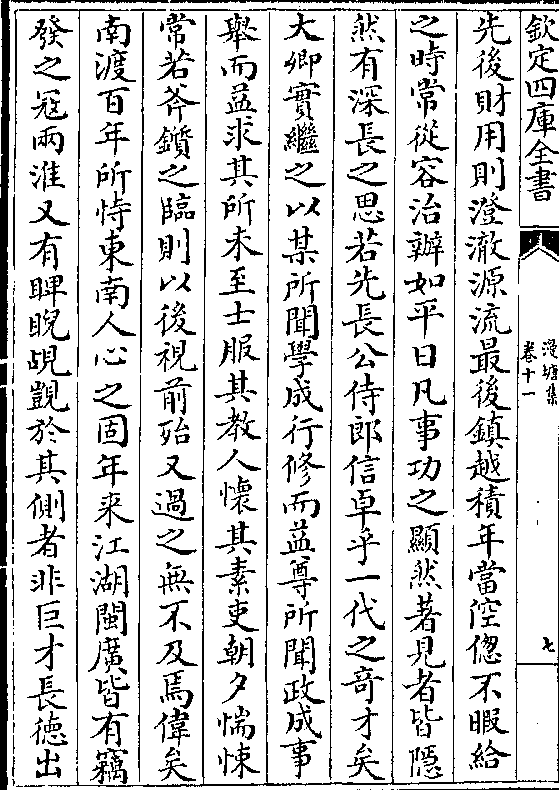 欽定四庫全書
漫塘集
卷十一
七
先後財用則澄澈源流最後鎮越積年當倥偬不暇給
之時常從容治辦如平日凡事功之顯然著見者皆隱
然有深長之思若先長公侍郎信卓乎一代之竒才矣
大卿實繼之以某所聞學成行修而益尊所聞政成事
舉而益求其所未至士服其教人懐其素吏朝夕惴悚
常若斧鑕之臨則以後視前殆又過之無不及焉偉矣
南渡百年所恃東南人心之固年来江湖閩廣皆有竊
發之冦兩淮又有睥睨覘覬於其側者非巨才長徳出